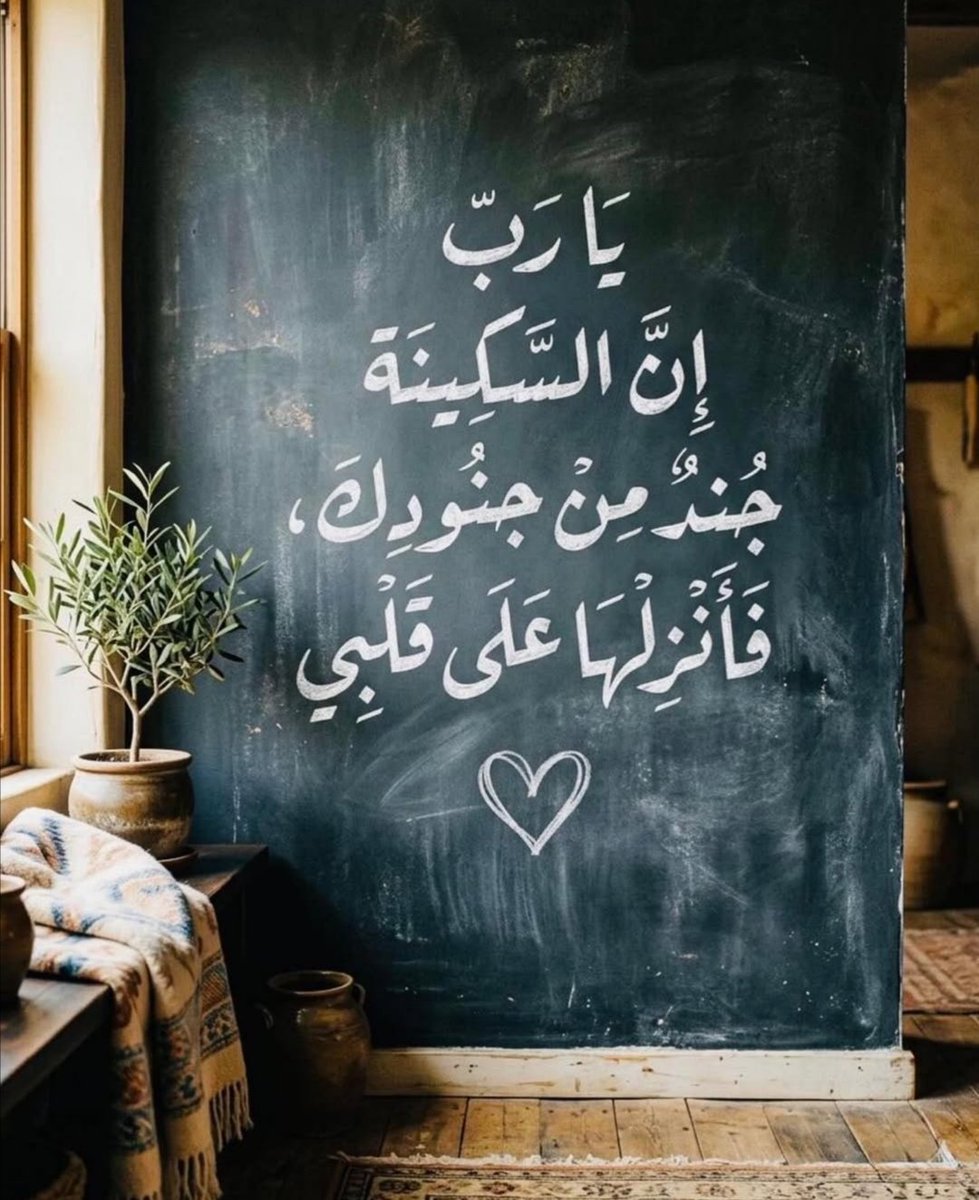 يَا رَبّ
إِنَّ السَّكِينَة
جُندٌ مِنْ جنُودِكَ،
فَأَنْزِلْهَا عَلَى قَلْبِي